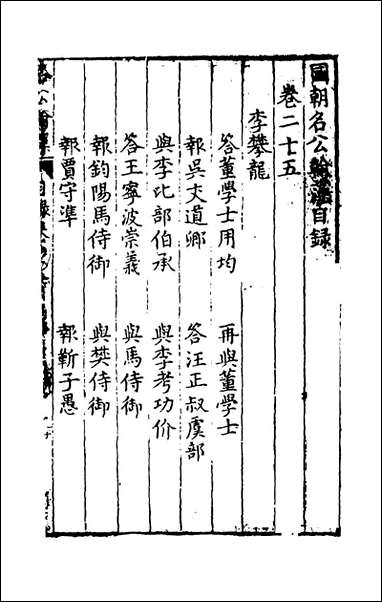 國朝名公翰藻目錄
卷二十五
李攀龍
答董學士用均
再與董學士
報吳文道卿
答汪正叔虞部
與李比部伯承
與李考功价
答王寧波崇義
與馬侍御
報鈞陽馬侍御
與樊侍御
報賈守準
報靳子愚